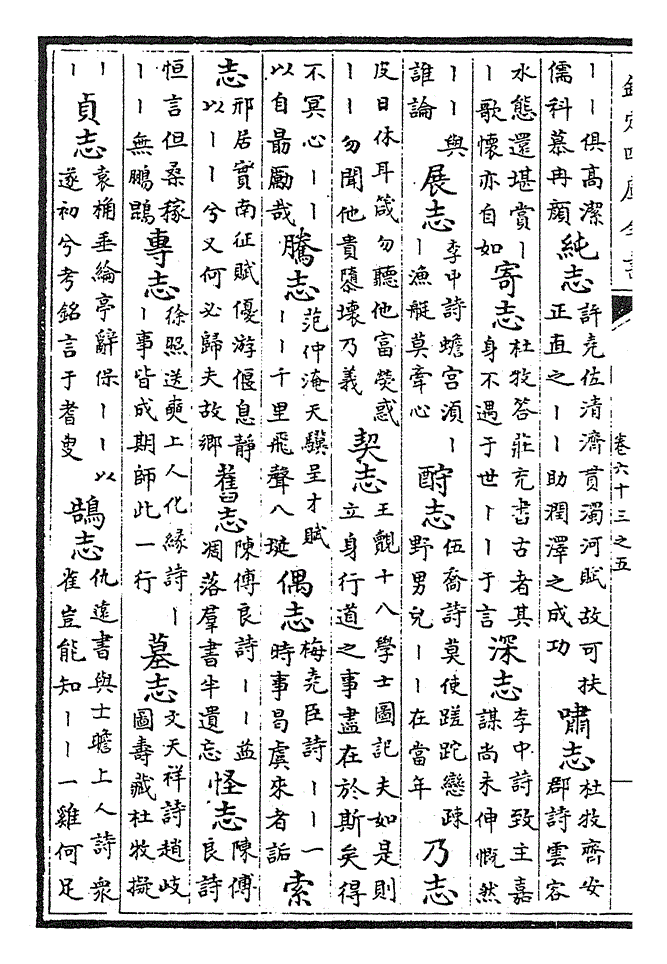 欽定四庫全書 卷六十三之五
｜｜俱高潔儒科慕冉顏 純志 許堯佐清濟貫濁河賦故可扶正直之｜｜助潤澤之成功 嘯志 杜牧齊安郡詩雲容
水態還堪賞｜｜歌懷亦自如 寄志 杜牧答莊充書古者其身不遇于世｜｜于言 深志 李中詩致主嘉謀尚未伸慨然
｜｜與誰論 展志 李中詩蟾宮湏｜｜漁艇莫牽心 酧志 伍喬詩莫使蹉跎戀疎野男兒｜｜在當年 乃志
皮日休耳箴勿聽他富熒惑｜｜勿聞他貴隳壞乃義 契志 王覿十八學士圖記夫如是則立身行道之事盡在於斯矣得
不冥心｜｜以自朂勵哉 騰志 范仲淹天驥呈才賦｜｜千里飛聲八埏 偶志 梅堯臣詩｜｜一時事昌虞來者詬 索
志 邢居實南征賦優游偃息靜以｜｜兮又何必歸夫故鄉 舊志 陳傅良詩｜｜益凋落羣書半遺忘 怪志 陳傅良詩
恒言但桑稼｜｜無鵬鵾 專志 徐照送奭上人化緣詩｜｜事皆成期師此一行 墓志 文天祥詩趙岐圖壽藏杜牧擬
｜｜ 貞志 袁桷垂綸亭辭保｜｜以遂初兮考銘言于耆叟 鵠志 仇遠書與士瞻上人詩衆雀豈能知｜｜一雞何足